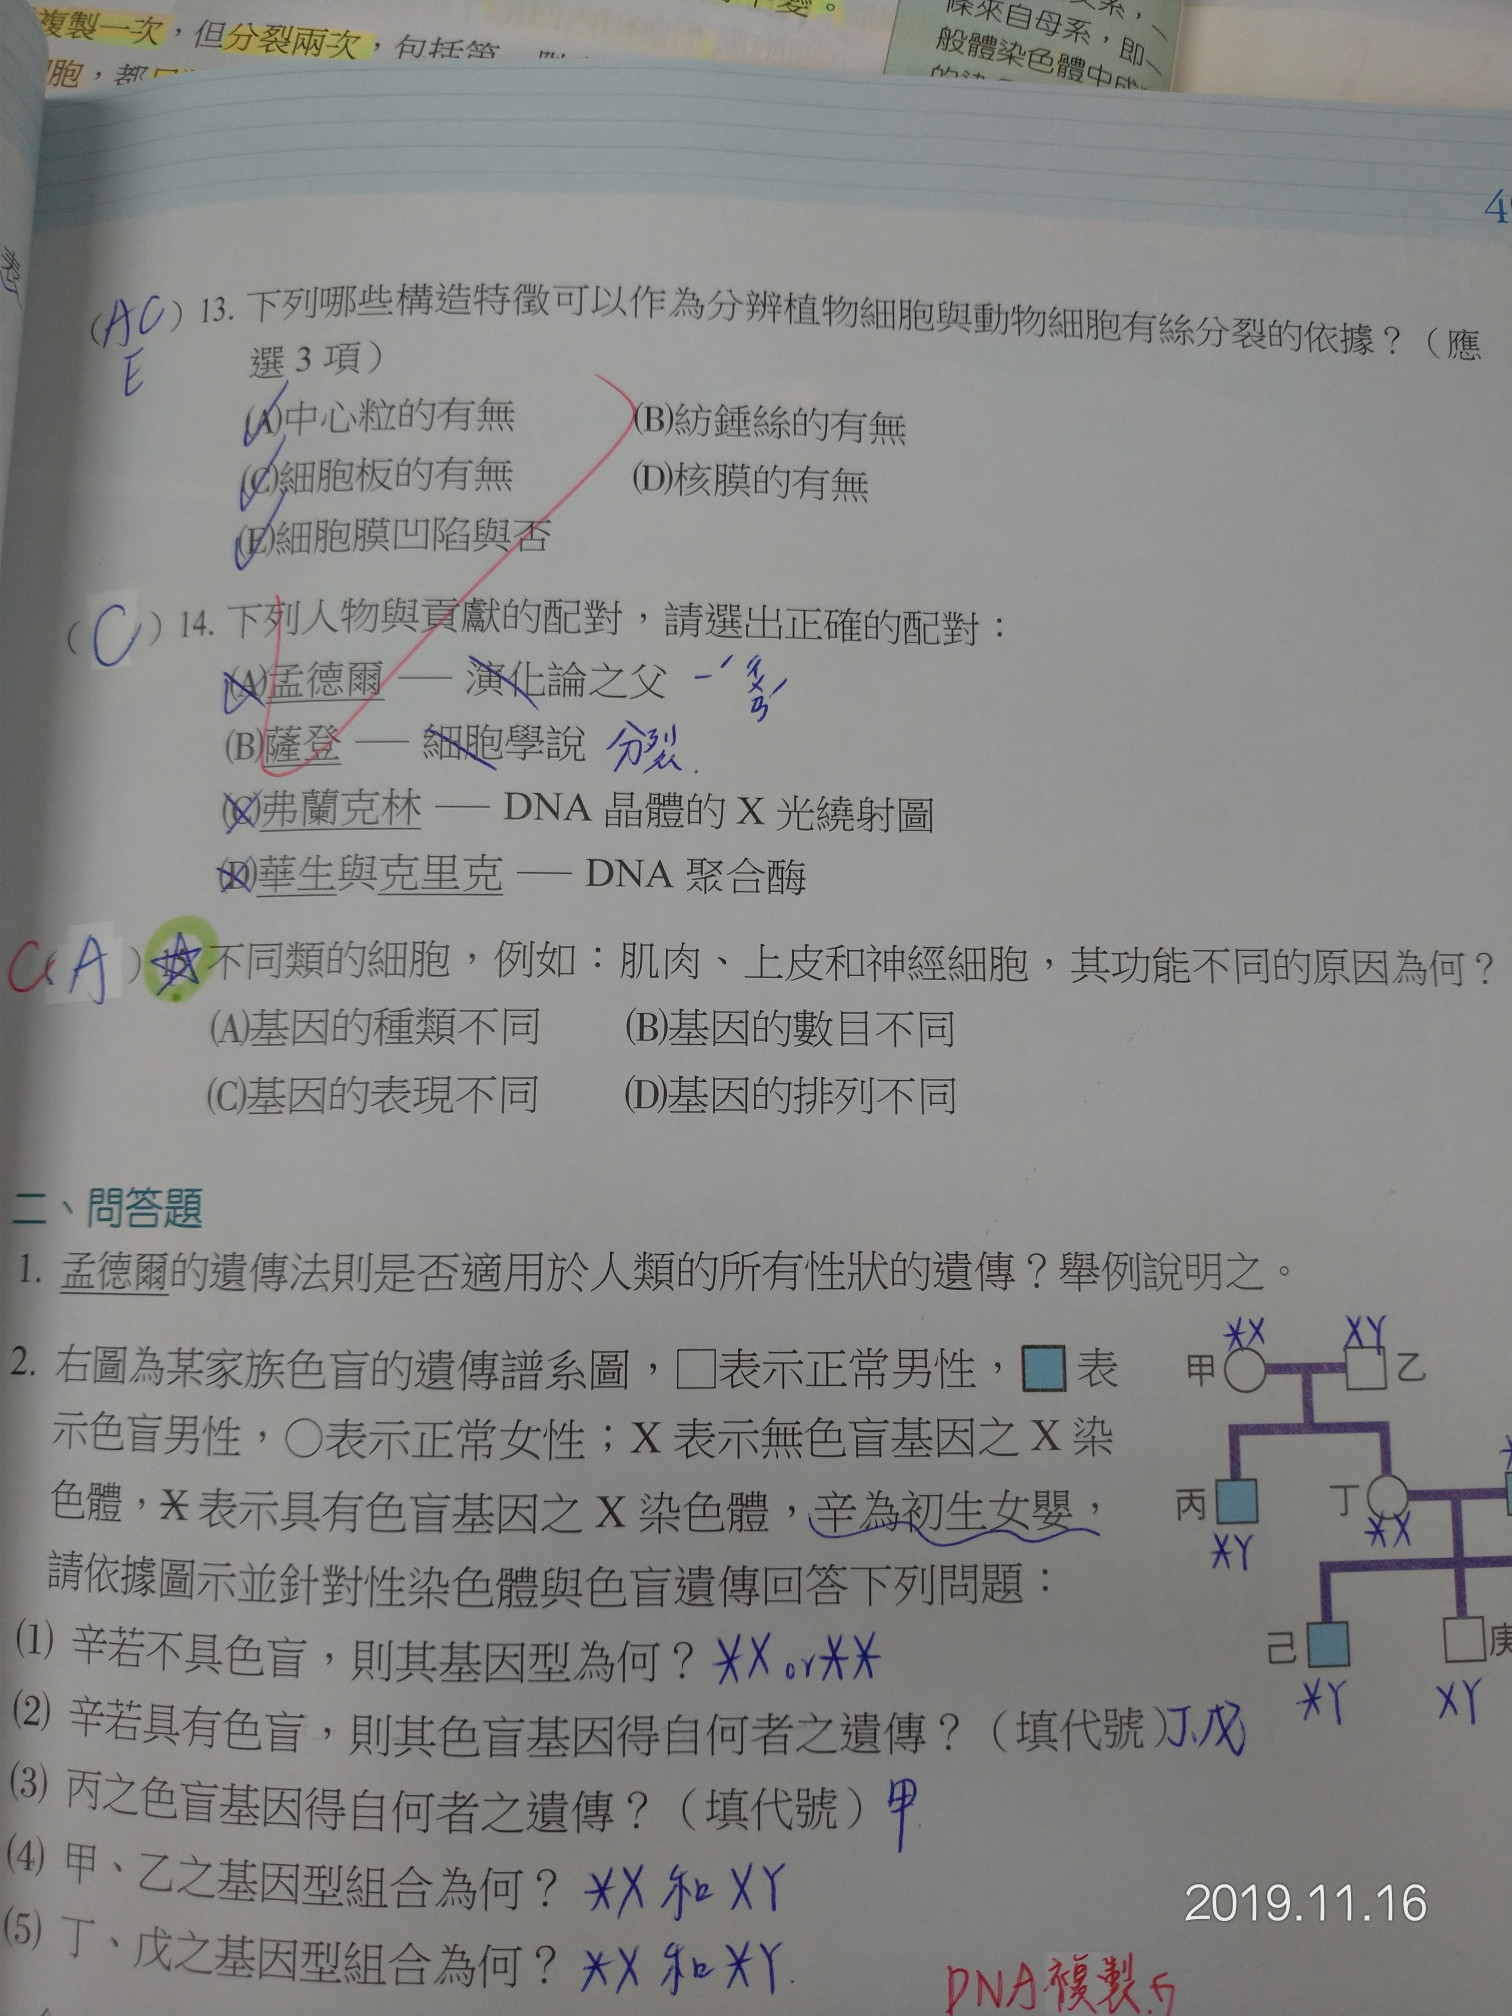 複製一次，但分裂兩次，包括第一
條來自母系，即
般體染色體中成
胞，都
(AC E) 13. 下列哪些構造特徵可以作為分辨植物細胞與動物細胞有絲分裂的依據？（應
選 3 項）
(A)中心粒的有無 (B)紡錘絲的有無
(C)細胞板的有無 (D)核膜的有無
(E)細胞膜凹陷與否
(C) 14. 下列人物與貢獻的配對，請選出正確的配對：
(A)孟德爾 — 演化論之父
(B)薩登 — 細胞學說 分裂.
(C)弗蘭克林 — DNA 晶體的 X 光繞射圖
(D)華生與克里克 — DNA 聚合酶
C (A) 不同類的細胞，例如：肌肉、上皮和神經細胞，其功能不同的原因為何？
(A)基因的種類不同 (B)基因的數目不同
(C)基因的表現不同 (D)基因的排列不同
二、問答題
1. 孟德爾的遺傳法則是否適用於人類的所有性狀的遺傳？舉例說明之。
2. 右圖為某家族色盲的遺傳譜系圖，□表示正常男性，■表
示色盲男性，○表示正常女性；X 表示無色盲基因之 X 染
色體，X 表示具有色盲基因之 X 染色體，辛為初生女嬰，
請依據圖示並針對性染色體與色盲遺傳回答下列問題：
XX XY
甲 乙
丙 丁
XY XX
己 庚
XY XY
(1) 辛若不具色盲，則其基因型為何？XX or XX
(2) 辛若具有色盲，則其色盲基因得自何者之遺傳？（填代號）丁、戊
(3) 丙之色盲基因得自何者之遺傳？（填代號）甲
(4) 甲、乙之基因型組合為何？XX 和 XY
(5) 丁、戊之基因型組合為何？XX 和 XY.
2019.11.16
DNA複製